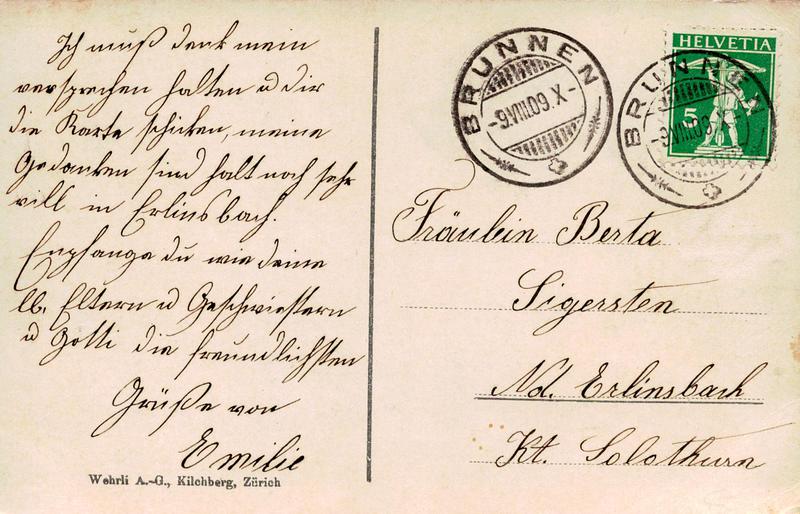 Ich muß denk mein
versprechen halten u dir
die Karte schicken, meine
Gedanken sind halt noch sehr
vill in Erlinsbach.
Empfange du wie deine
lb. Eltern u Geschwistern
u Gotti die freundlichsten
Grüße von
Emilie
Wehrli A.-G., Kilchberg, Zürich
BRUNNEN
-9.VIII.09.X-
HELVETIA
5
BRUNNEN
-9.VIII.09.X-
Fräulein Berta
Sigersten
Nd. Erlinsbach
Kt. Solothurn